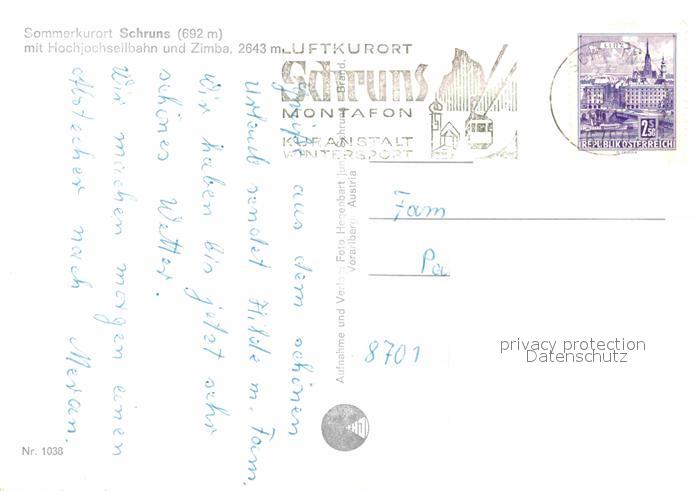 Sommerkurort Schruns (692 m)
mit Hochjochseilbahn und Zimba, 2643 m
LUFTKURORT
Schruns
MONTAFON
KURANSTALT
WINTERSPORT
LINZ
2.50
REPUBLIK ÖSTERREICH
Grüße aus dem schönen
Urlaub sendet Hilde m. Fam.
Wir haben bis jetzt sehr
schönes Wetter.
Wir machen morgen einen
Abstecher nach Meran.
Aufnahme und Verlag: Foto Hegenbart jun., Schruns - Brand,
Vorarlberg Austria
Fam
Pa
8701
privacy protection
Datenschutz
Nr. 1038